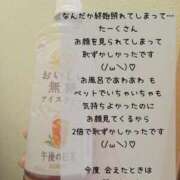 なんだか終始照れてしまって…
たーくさん
お顔を見られてしまって
恥ずかしかったです
(/ω＼)♡
お風呂であわあわ も
ベットでいちゃいちゃも
気持ちよかったのに
お顔見てくるから
2倍で恥ずかしかったです
(/ω＼)♡
今度 会えたときは
おいしい
無糖
午後の紅茶